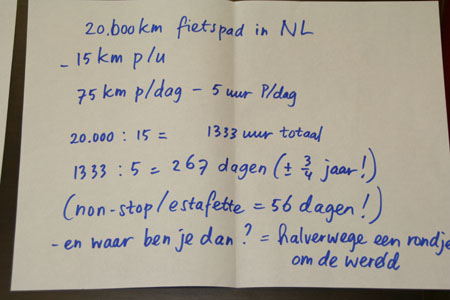 20.000km fietspad in NL
- 15 km p/u
75 km p/dag - 5 uur P/dag
20.000 : 15 = 1333 uur totaal
1333 : 5 = 267 dagen (± 3/4 jaar!)
(non-stop/estafette = 56 dagen!)
- en waar ben je dan? = halverwege een rondje
om de wereld